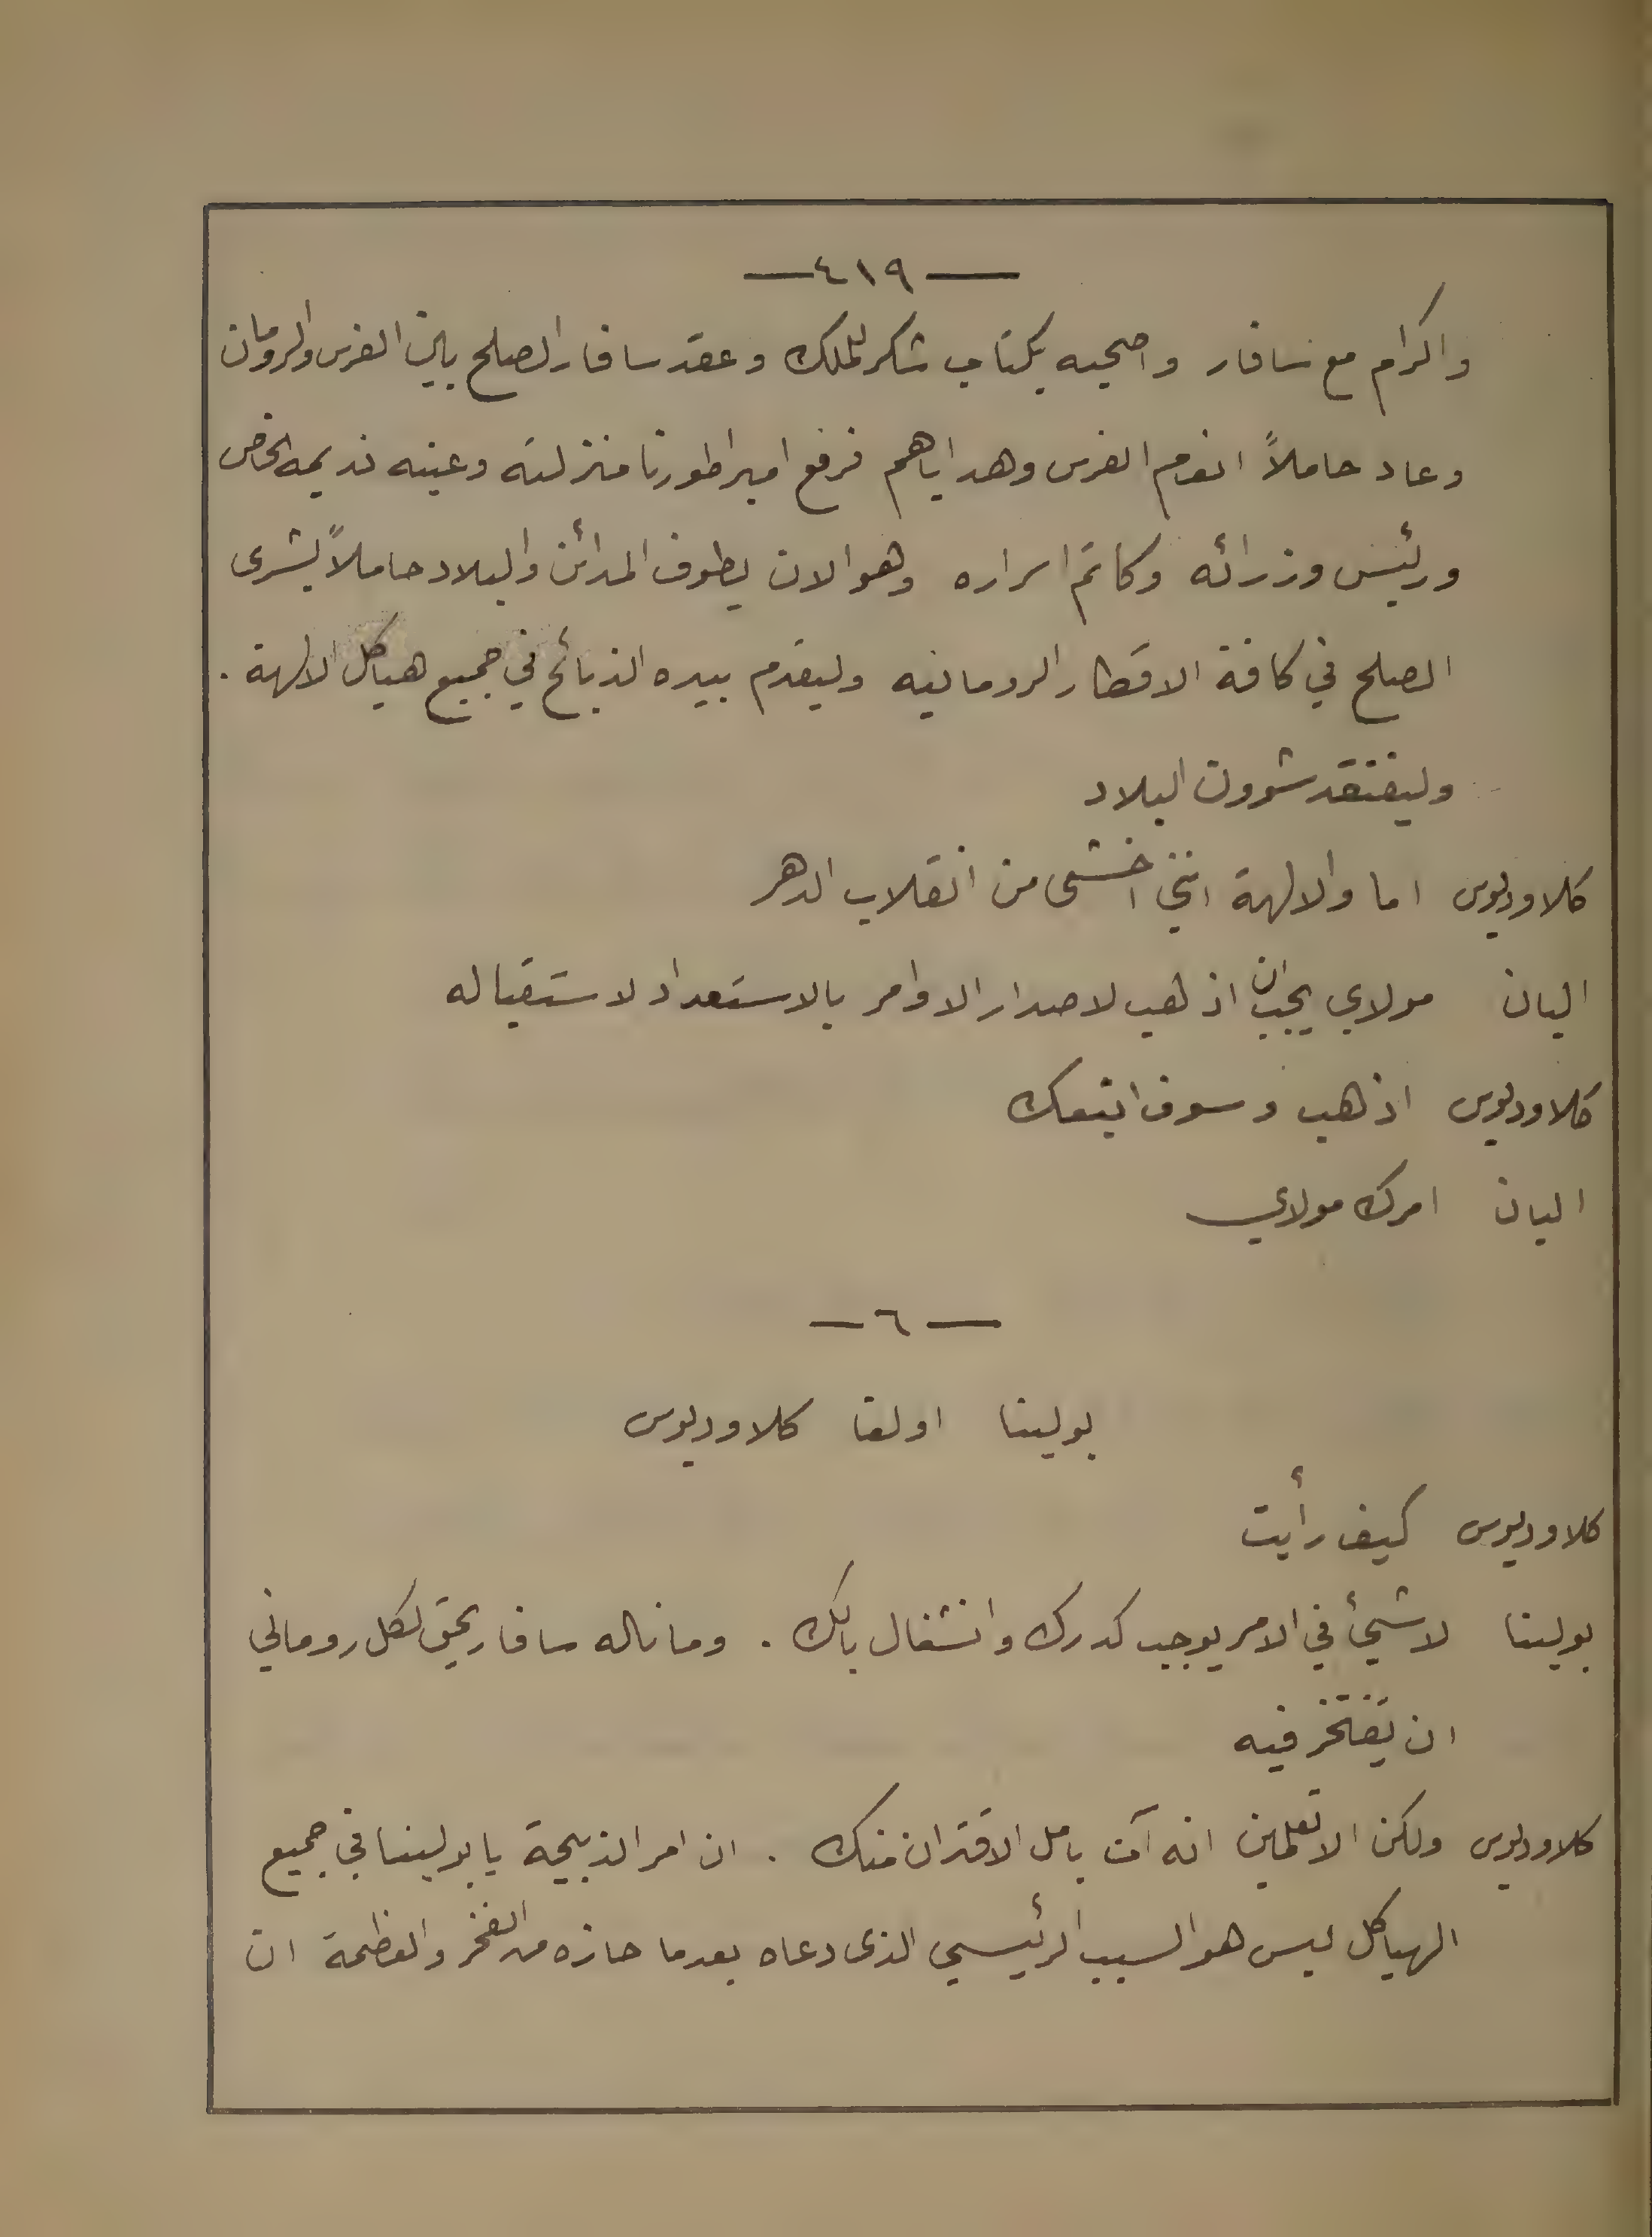 —٤١٩—
واكرام مع سافار واصحبه بكتاب شكر للملك وعقد سافار الصلح بين الفرس والرومان
وعاد حاملاً انعام الفرس وهداياهم فرفع امبراطورنا منزلته وعينه نديمه الخاص
ورئيس وزرائه وكاتم اسراره وهو الان يطوف المدائن والبلاد حاملاً بشرى
الصلح في كافة الاقطار الرومانيه وليقدم بيده الذبائح في جميع هياكل الالهة .
وليفتقد شوون البلاد
كلاوديوس اما والالهة انني اخشى من انقلاب الدهر
البان مولاي يجب ان اذهب لاصدار الاوامر بالاستعداد لاستقباله
كلاوديوس اذهب وسوف اتبعك
البان امرك مولاي
—٦—
بولينا اولقا كلاوديوس
كلاوديوس كيف رأيت
بولينا لا شيئ في الامر يوجب كدرك وانشغال بالك . وما ناله سافار يحق لكل روماني
ان يفتخر فيه
كلاوديوس ولكن الا تعلمين انه آت بامل الاقتران منك . ان امر الذبيحة يا بولينا في جميع
الهياكل ليس هو السبب الرئيسي الذى دعاه بعدما حازه من الفخر والعظمة ان